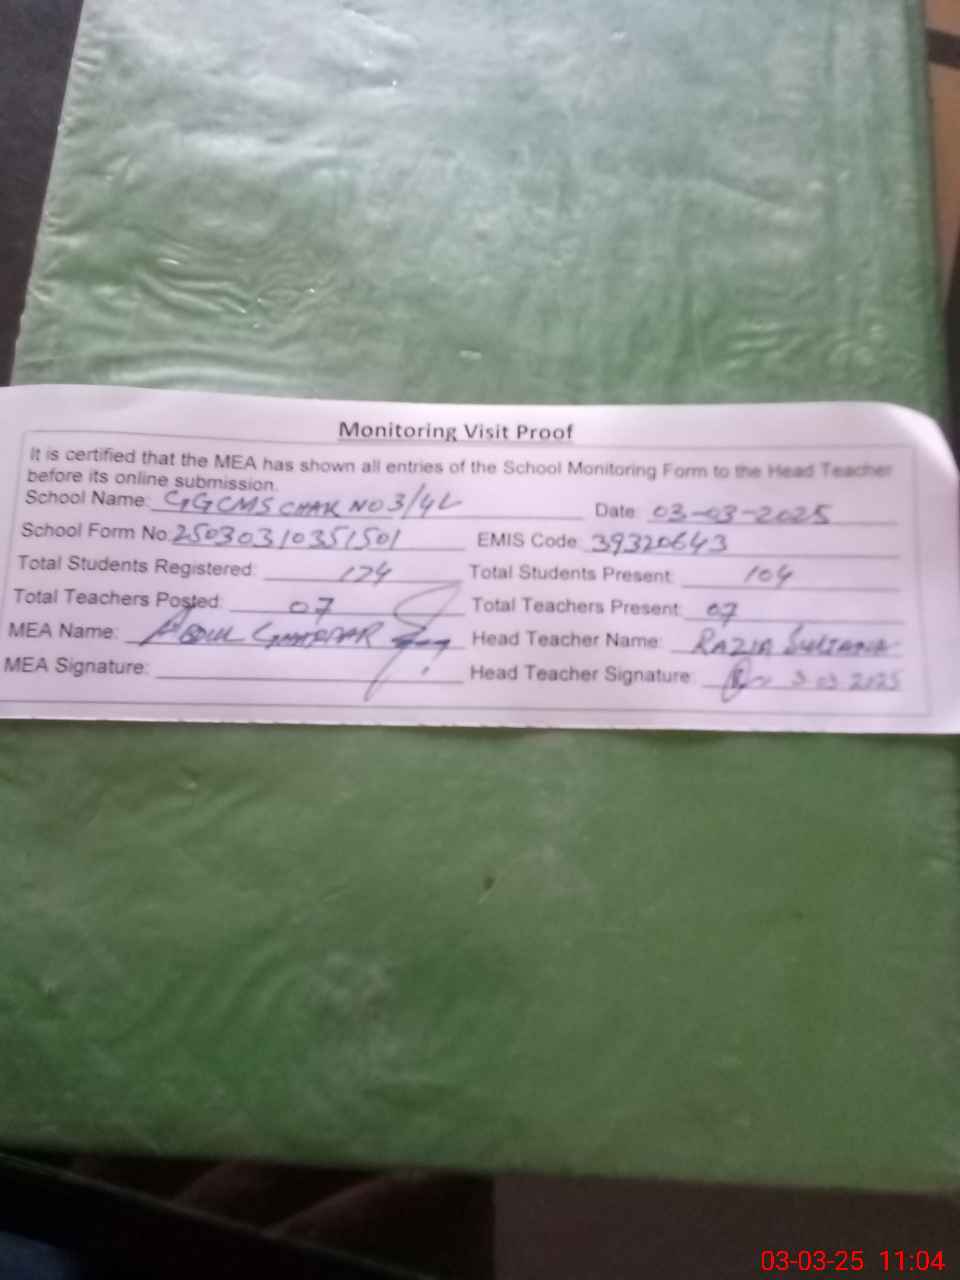 Monitoring Visit Proof
It is certified that the MEA has shown all entries of the School Monitoring Form to the Head Teacher
before its online submission.
School Name: GGCMS CHAK NO 3/4L Date: 03-03-2025
School Form No. 25030310351501 EMIS Code: 39320643
Total Students Registered: 124 Total Students Present: 104
Total Teachers Posted: 07 Total Teachers Present: 07
MEA Name: ABDUL GHAFFAR Head Teacher Name: RAZIA SULTANA
MEA Signature: Head Teacher Signature: 3 03 2025
03-03-25 11:04